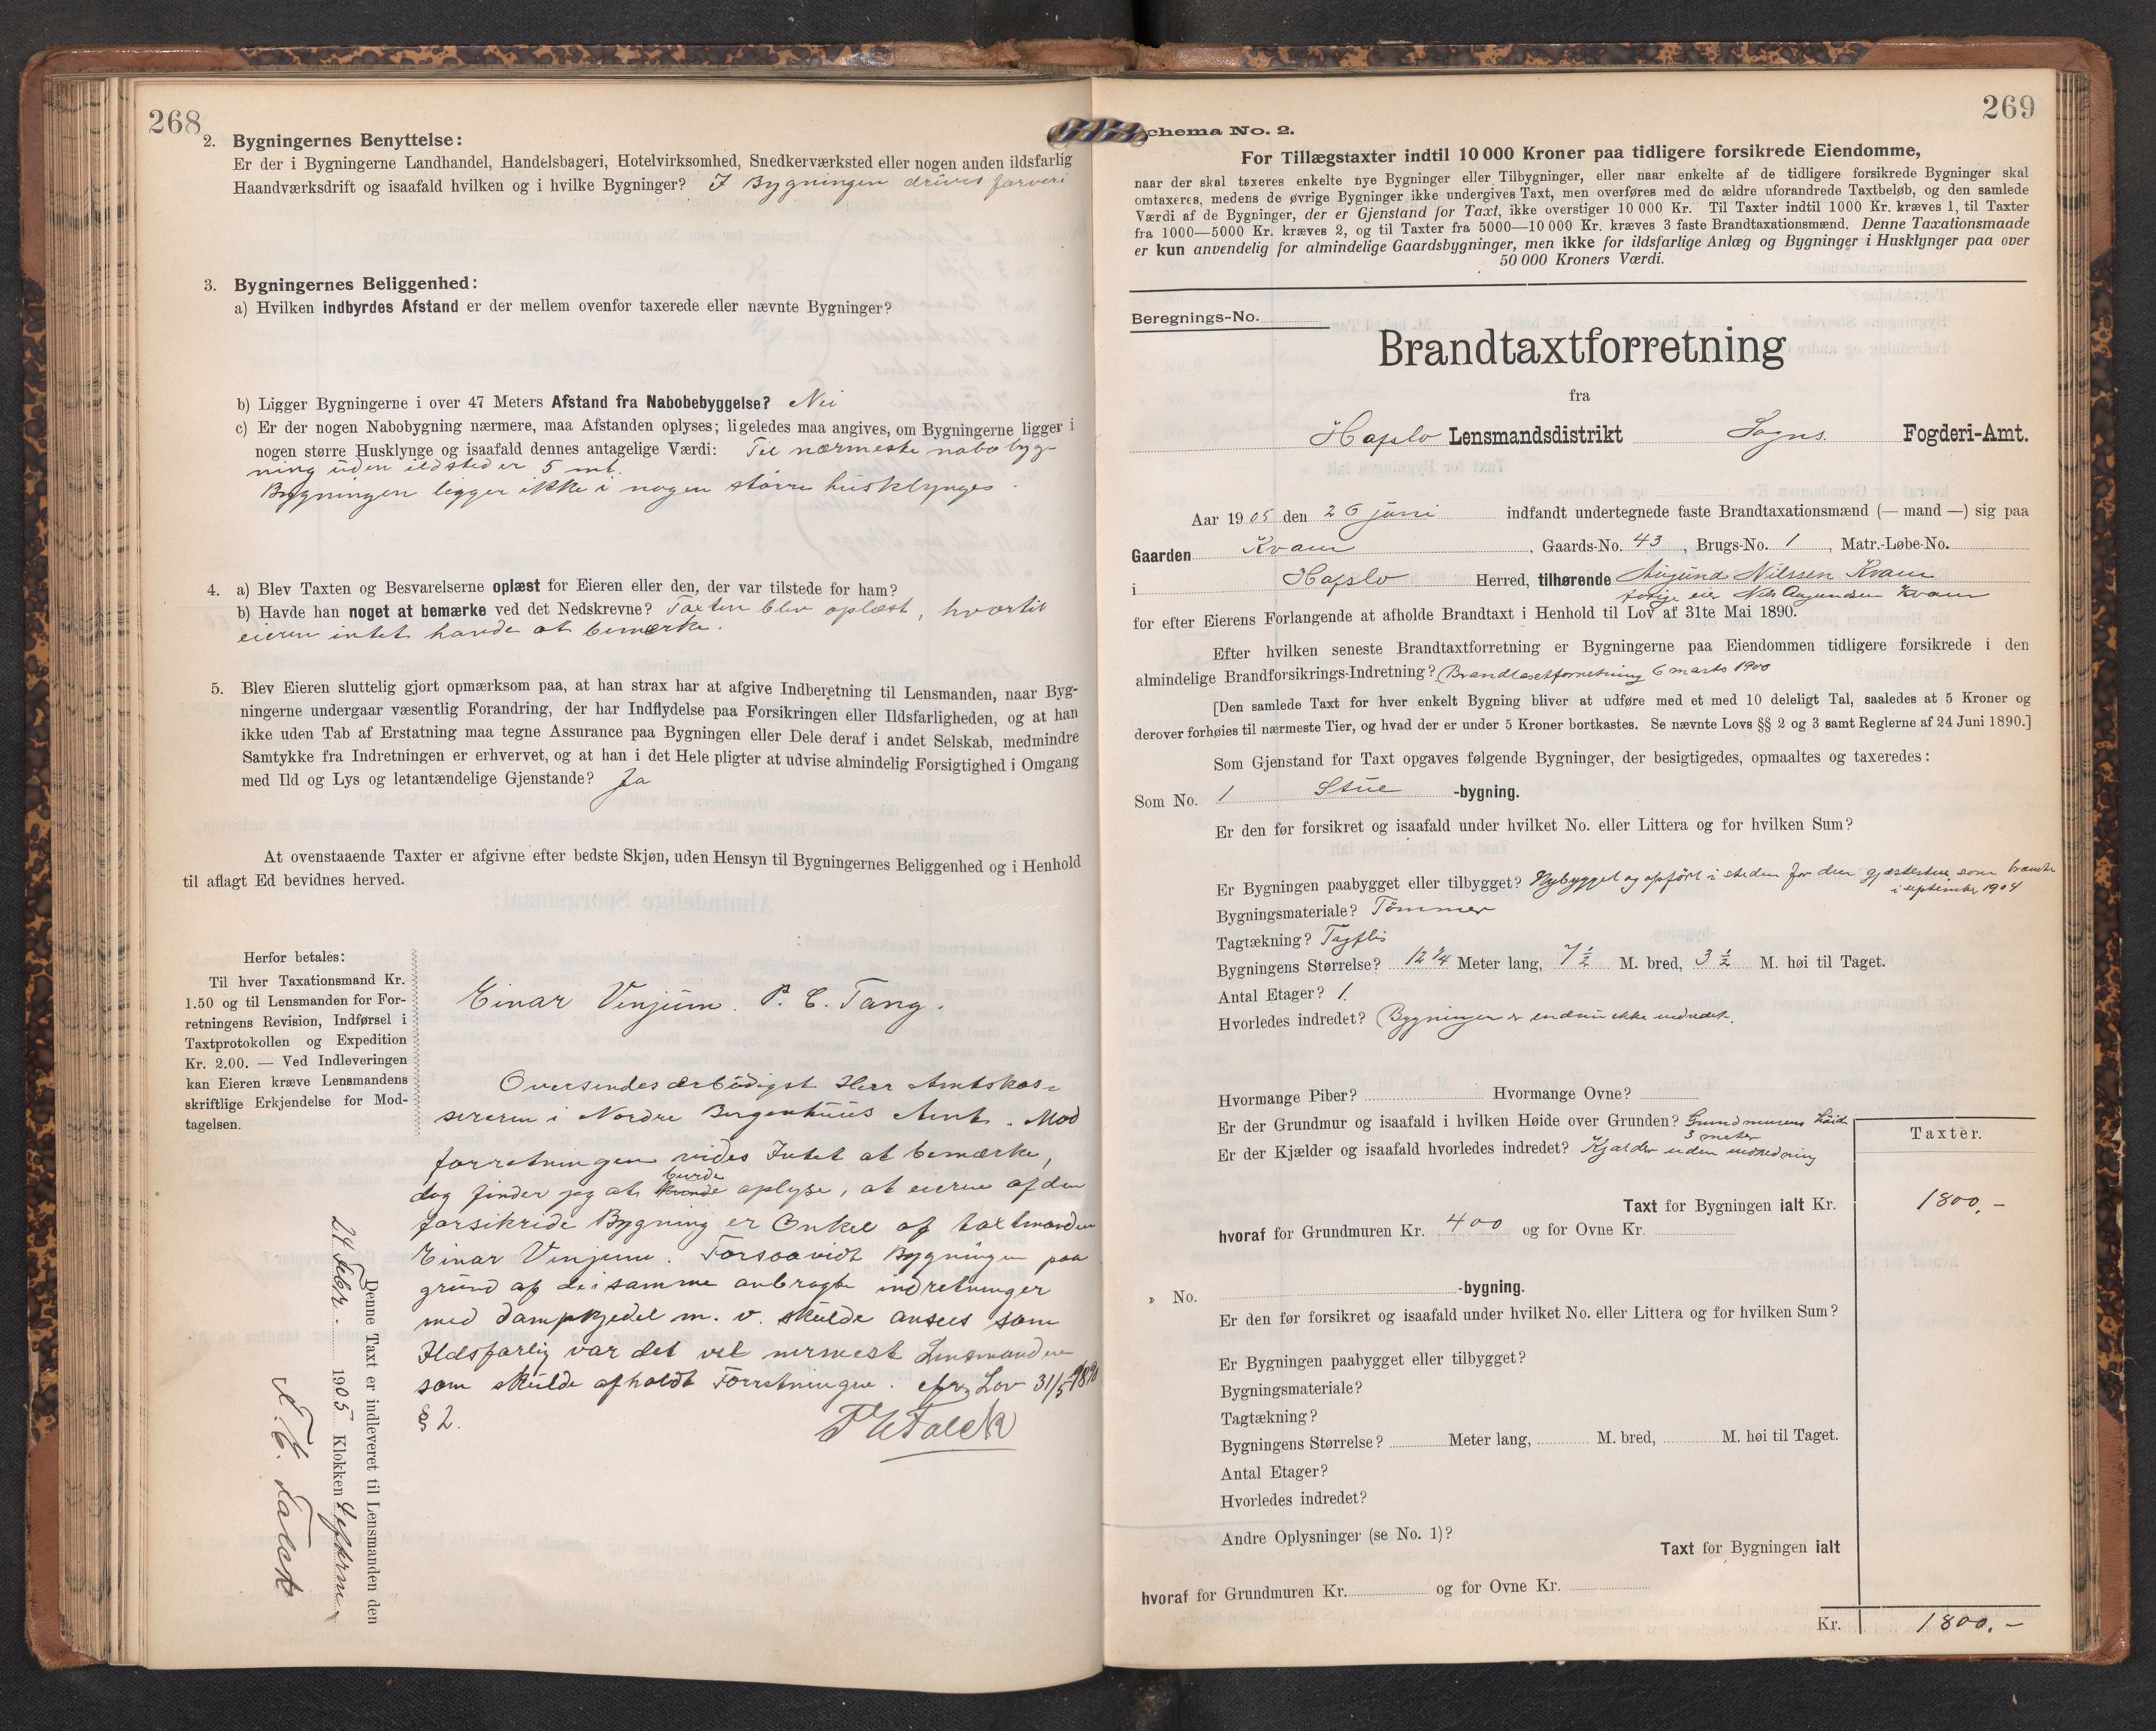 268
2. Bygningernes Benyttelse:
Er der i Bygningerne Landhandel, Handelsbageri, Hotelvirksomhed, Snedkerværksted eller nogen anden ildsfarlig
Haandværksdrift og isaafald hvilken og i hvilke Bygninger? I Bygningen drives farveri
3. Bygningernes Beliggenhed:
a) Hvilken indbyrdes Afstand er der mellem ovenfor taxerede eller nævnte Bygninger?
b) Ligger Bygningerne i over 47 Meters Afstand fra Nabobebyggelse? Nei
c) Er der nogen Nabobygning nærmere, maa Afstanden oplyses; ligeledes maa angives, om Bygningerne ligger i
nogen større Husklynge og isaafald dennes antagelige Værdi: Til nærmeste nabobyg-
ning uden ildsted er 5 mt.
Bygningen ligger ikke i nogen større husklynge.
4. a) Blev Taxten og Besvarelserne oplæst for Eieren eller den, der var tilstede for ham?
b) Havde han noget at bemærke ved det Nedskrevne? Taxten blev oplæst, hvortil
eieren intet havde at bemærke.
5. Blev Eieren sluttelig gjort opmærksom paa, at han strax har at afgive Indberetning til Lensmanden, naar Byg-
ningerne undergaar væsentlig Forandring, der har Indflydelse paa Forsikringen eller Ildsfarligheden, og at han
ikke uden Tab af Erstatning maa tegne Assurance paa Bygningen eller Dele deraf i andet Selskab, medmindre
Samtykke fra Indretningen er erhvervet, og at han i det Hele pligter at udvise almindelig Forsigtighed i Omgang
med Ild og Lys og letantændelige Gjenstande? Ja
At ovenstaaende Taxter er afgivne efter bedste Skjøn, uden Hensyn til Bygningernes Beliggenhed og i Henhold
til aflagt Ed bevidnes herved.
Herfor betales:
Til hver Taxationsmand Kr.
1.50 og til Lensmanden for For-
retningens Revision, Indførsel i
Taxtprotokollen og Expedition
Kr. 2.00. — Ved Indleveringen
kan Eieren kræve Lensmandens
skriftlige Erkjendelse for Mod-
tagelsen.
Einar Vinjum. P. C. Tang.
Oversendes ærbödigst Herr Amtskas-
sereren i Nordre Bergenhuus Amt. Mod
forretningen vides Intet at bemærke,
dog finder jeg at burde oplyse, at eieren af den
forsikrede Bygning er Onkel af taxtmanden
Einar Vinjum. Forsaavidt Bygningen paa
grund af de i samme anbragte indretninger
med Dampkjedel m. v. skulde ansees som
Ildsfarlig var det vel nærmest Lensmanden
som skulde afholdt Forretningen. cfr. Lov 31/5 1890
§ 2.
T E Falck
Denne Taxt er indleveret til Lensmanden den
24 febr. 1905 Klokken
T. E. Falck
269
Schema No. 2.
For Tillægstaxter indtil 10 000 Kroner paa tidligere forsikrede Eiendomme,
naar der skal taxeres enkelte nye Bygninger eller Tilbygninger, eller naar enkelte af de tidligere forsikrede Bygninger skal
omtaxeres, medens de øvrige Bygninger ikke undergives Taxt, men overføres med de ældre uforandrede Taxtbeløb, og den samlede
Værdi af de Bygninger, der er Gjenstand for Taxt, ikke overstiger 10 000 Kr. Til Taxter indtil 1000 Kr. kræves 1, til Taxter
fra 1000—5000 Kr. kræves 2, og til Taxter fra 5000—10 000 Kr. kræves 3 faste Brandtaxationsmænd. Denne Taxationsmaade
er kun anvendelig for almindelige Gaardsbygninger, men ikke for ildsfarlige Anlæg og Bygninger i Husklynger paa over
50 000 Kroners Værdi.
Beregnings-No.
Brandtaxtforretning
fra
Hafslo Lensmandsdistrikt Sogns Fogderi-Amt.
Aar 1905 den 26 juni indfandt undertegnede faste Brandtaxationsmænd (— mand —) sig paa
Gaarden Kvam, Gaards-No. 43, Brugs-No. 1, Matr.-Løbe-No.
i Hafslo Herred, tilhørende Augund Nilssen Kvam
forige eier Nils Augundsen Kvam
for efter Eierens Forlangende at afholde Brandtaxt i Henhold til Lov af 31te Mai 1890.
Efter hvilken seneste Brandtaxtforretning er Bygningerne paa Eiendommen tidligere forsikrede i den
almindelige Brandforsikrings-Indretning? Brandtaxtforretning 6 marts 1900
[Den samlede Taxt for hver enkelt Bygning bliver at udføre med et med 10 deleligt Tal, saaledes at 5 Kroner og
derover forhøies til nærmeste Tier, og hvad der er under 5 Kroner bortkastes. Se nævnte Lovs §§ 2 og 3 samt Reglerne af 24 Juni 1890.]
Som Gjenstand for Taxt opgaves følgende Bygninger, der besigtigedes, opmaaltes og taxeredes:
Som No. 1 Stue -bygning.
Er den før forsikret og isaafald under hvilket No. eller Littera og for hvilken Sum?
Er Bygningen paabygget eller tilbygget? Nybygget og opført i steden for den gjæstestue, som brændte
i september 1904
Bygningsmateriale? Tömmer
Tagtækning? Tagflis
Bygningens Størrelse? 12 1/4 Meter lang, 7 1/2 M. bred, 3 1/2 M. høi til Taget.
Antal Etager? 1
Hvorledes indredet? Bygningen er endnu ikke indredet.
Hvormange Piber? Hvormange Ovne?
Er der Grundmur og isaafald i hvilken Høide over Grunden? Grundmurens höide
3 meter
Er der Kjælder og isaafald hvorledes indredet? Kjælder uden indredning
Taxter.
Taxt for Bygningen ialt Kr. 1800,-
hvoraf for Grundmuren Kr. 400 og for Ovne Kr.
» No. -bygning.
Er den før forsikret og isaafald under hvilket No. eller Littera og for hvilken Sum?
Er Bygningen paabygget eller tilbygget?
Bygningsmateriale?
Tagtækning?
Bygningens Størrelse? Meter lang, M. bred, M. høi til Taget.
Antal Etager?
Hvorledes indredet?
Andre Oplysninger (se No. 1)?
Taxt for Bygningen ialt
hvoraf for Grundmuren Kr. og for Ovne Kr.
Kr. 1800.-